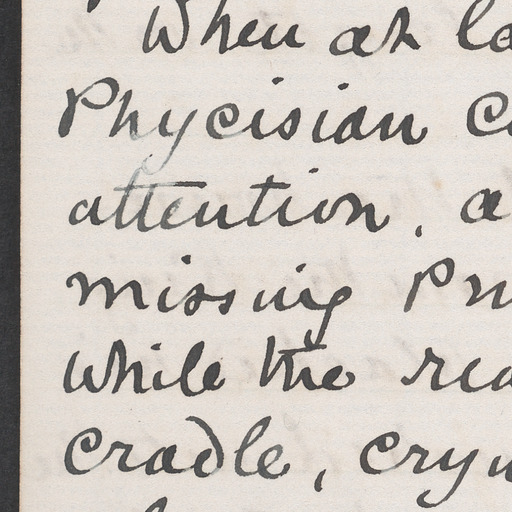 When at la
Phycisian c
attention, a
missing Pr
while the rea
cradle, cryin